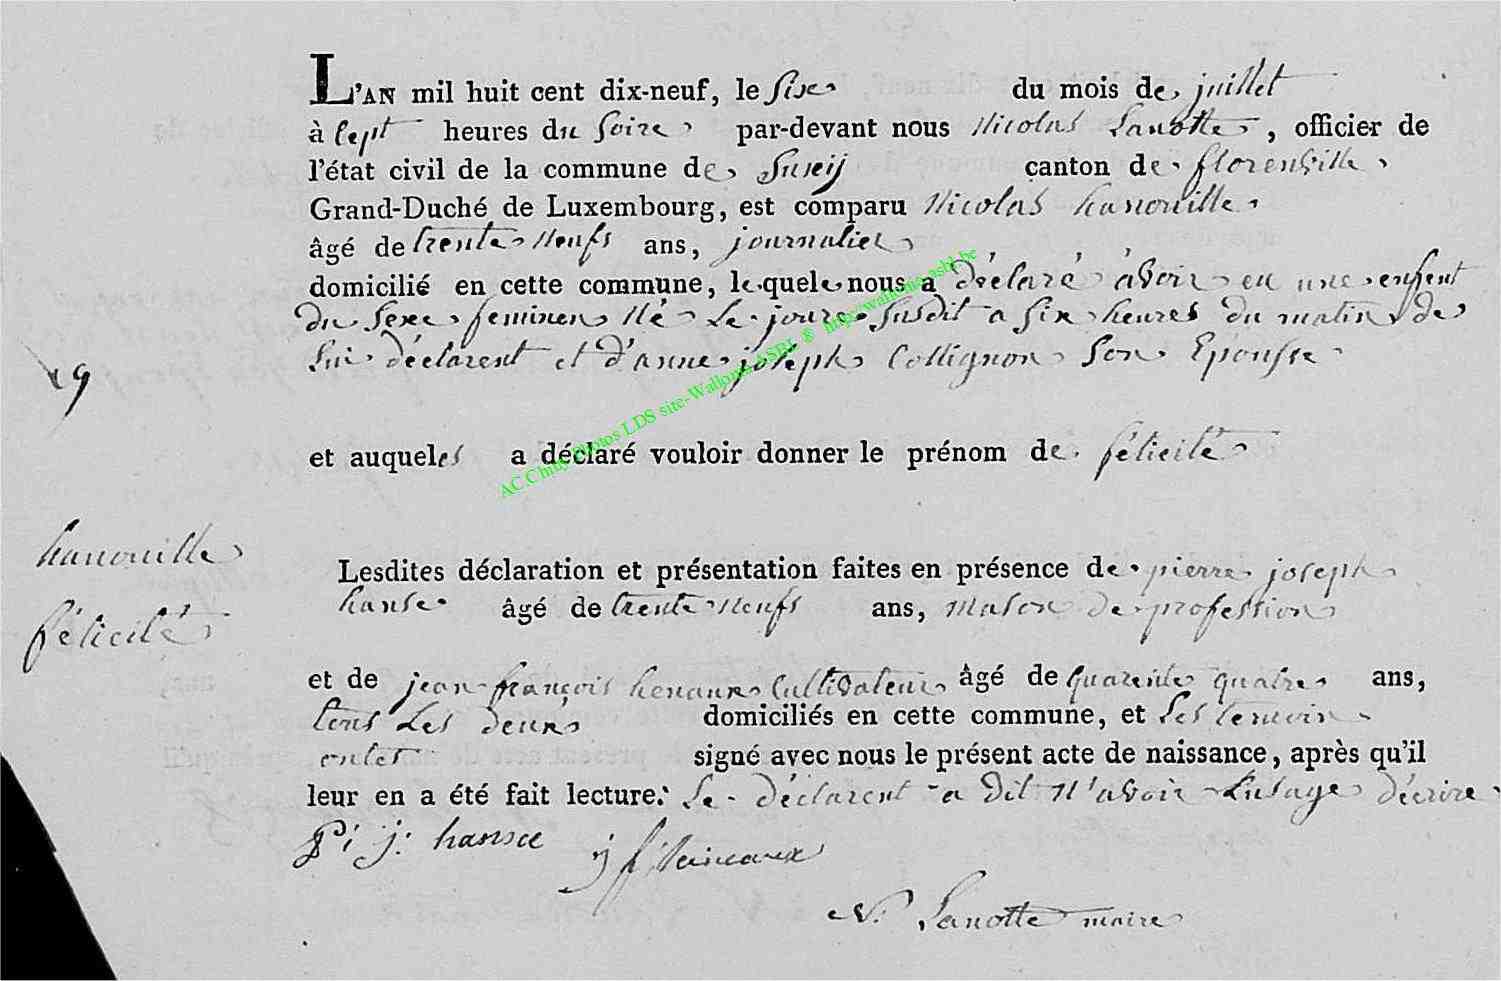 L'AN mil huit cent dix-neuf, le Six du mois de juillet
à Sept heures du Soire par-devant nous Nicolas Lanotte, officier de
l'état civil de la commune de Suxeij canton de florenville
Grand-Duché de Luxembourg, est comparu Nicolas hanouille
âgé de trente Neufs ans, journalier
domicilié en cette commune, lequele nous a déclaré avoir eu une enfent
du Sexe feminen Né Le jour Susdit a Six heures du matin de
Lui déclarent et d'anne joseph Collignon Son Epousse
19
et auqueles a déclaré vouloir donner le prénom de félicité
hanouille
félicité
Lesdites déclaration et présentation faites en présence de pierre joseph
hanse âgé de trente Neufs ans, mason de profession
et de jean françois henaux Cultivateur âgé de quarente quatre ans,
tous Les deux domiciliés en cette commune, et Les temoin
ontes signé avec nous le présent acte de naissance, après qu'il
leur en a été fait lecture. Le déclarent a dit N'avoir Lusage décrire
P: j: hansce
j f
N: Lanotte maire
AC.Chiny Photos LDS site-Wallonia ASBL © http:wallonia-asbl.be